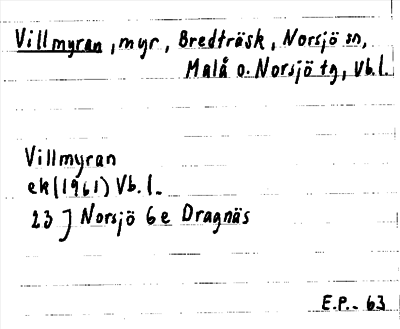 Villmyran, myr, Bredträsk, Norsjö sn,
Malå o. Norsjö tg, Vb.l.
Villmyran
ek (1961) Vb.l.
23 J Norsjö 6e Dragnäs
E.P. - 63